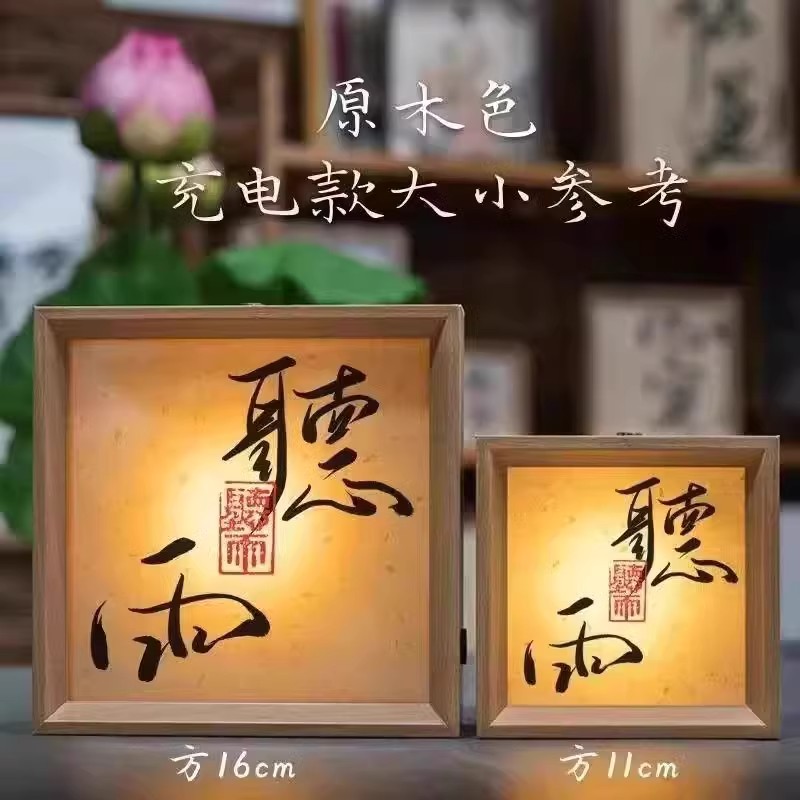 原木色
充电款大小参考
聽
雨
聽雨
聽
雨
聽雨
方16cm
方11cm